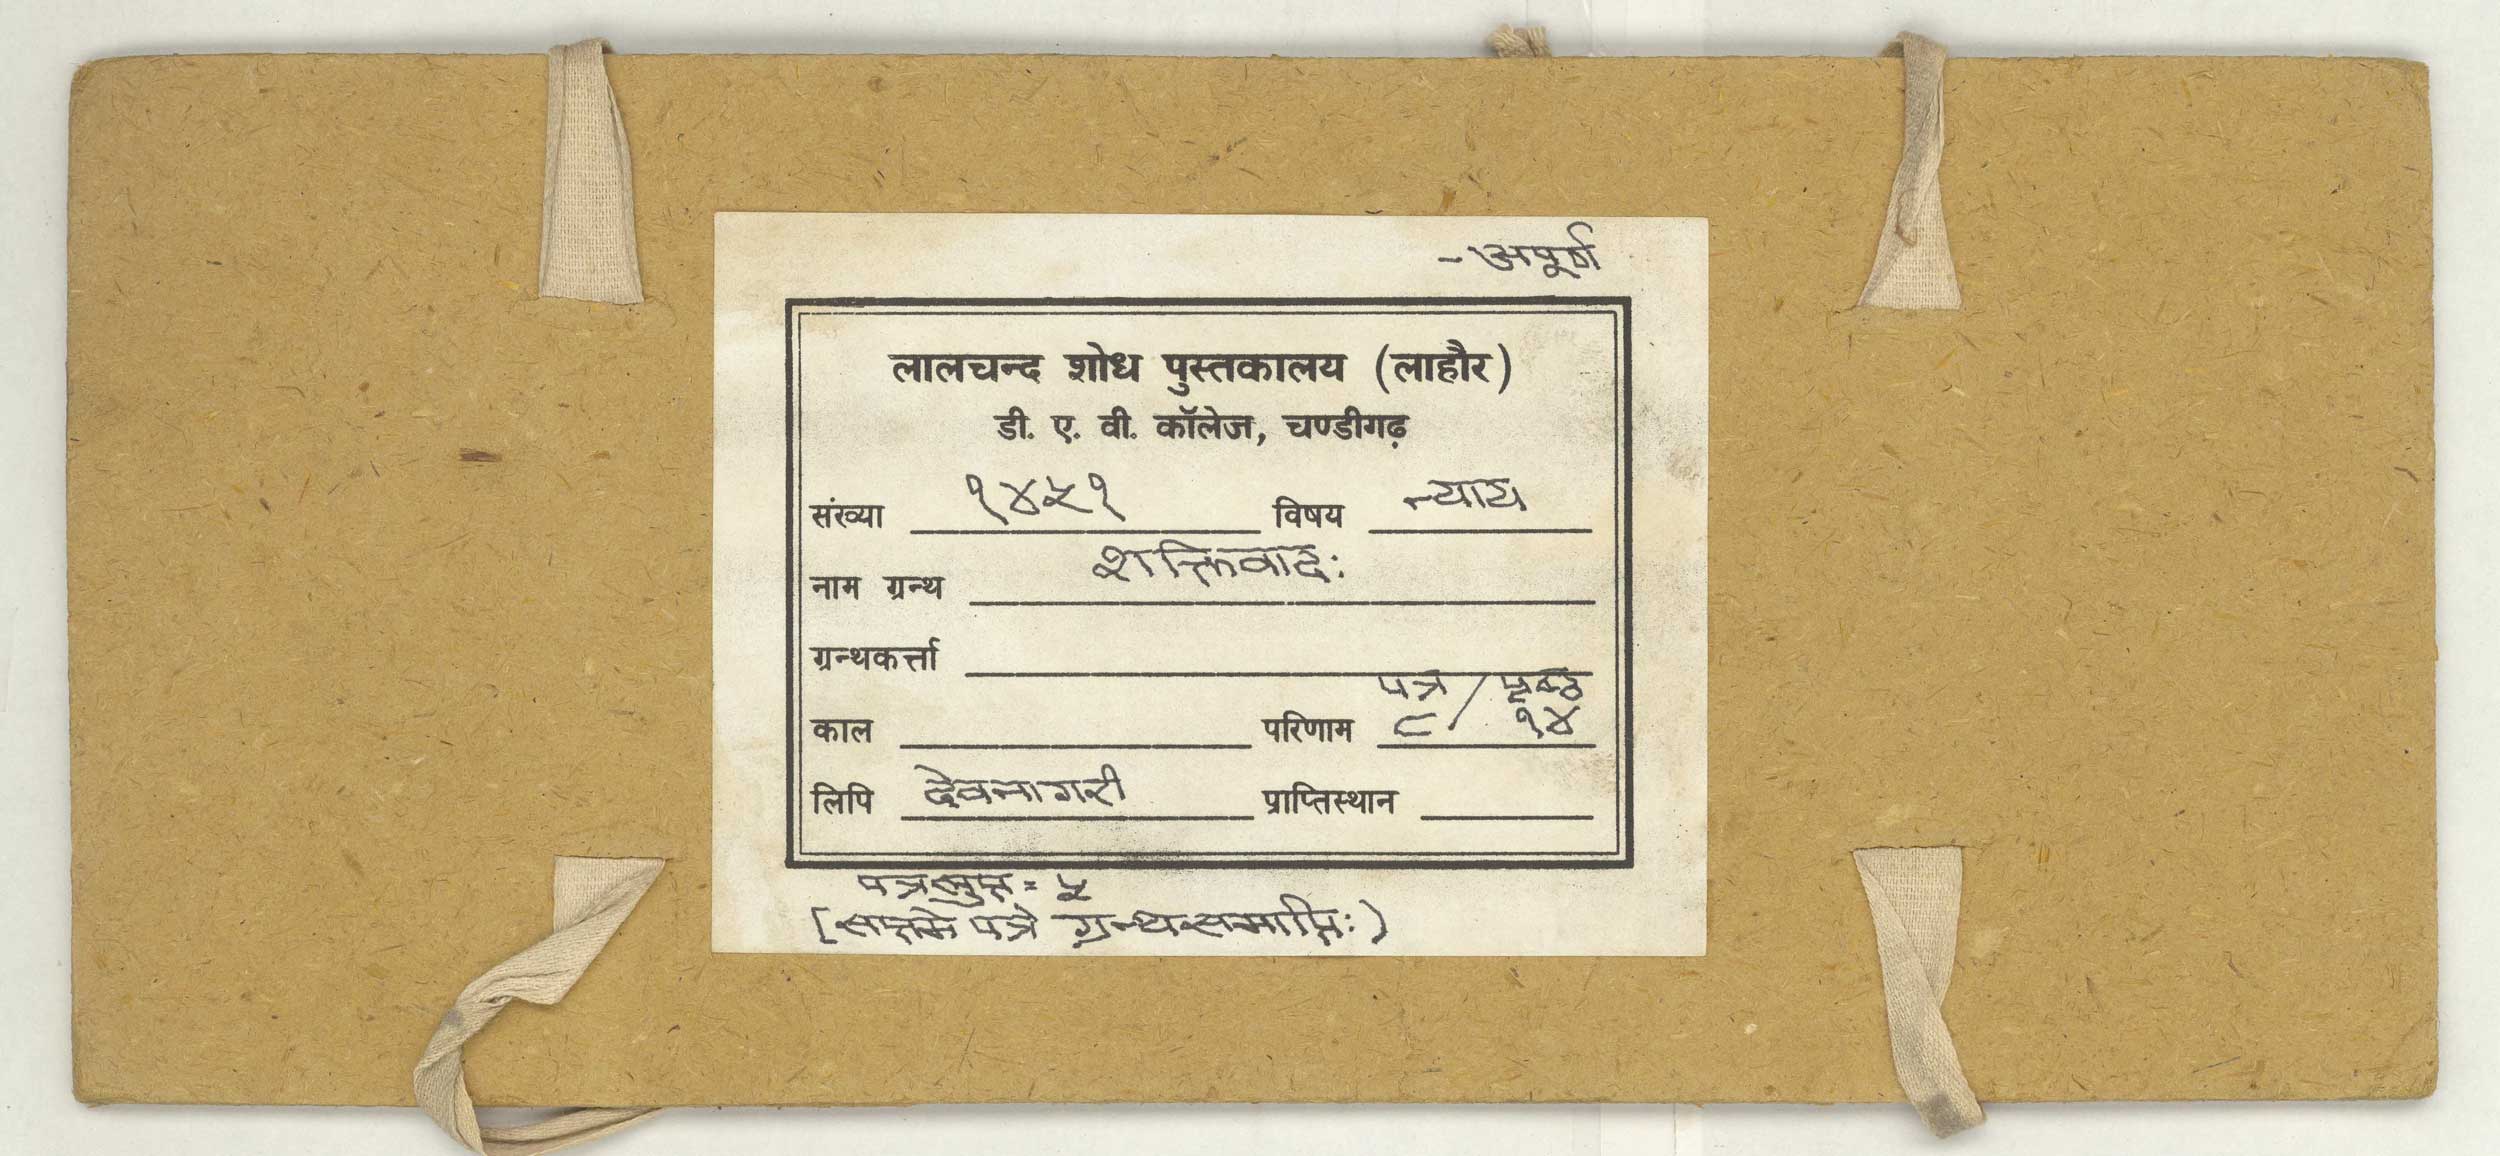 -अपूर्ण
लालचन्द शोध पुस्तकालय (लाहौर)
डी. ए. वी. कॉलेज, चण्डीगढ़
संख्या १४५१ विषय न्याय
नाम ग्रन्थ शक्तिवाद:
ग्रन्थकर्त्ता
पत्र / पृष्ठ
काल परिणाम ८ / १४
लिपि देवनागरी प्राप्तिस्थान
पत्रलुप्त = ५
[सप्तमे पत्रे ग्रन्थसमाप्ति:)